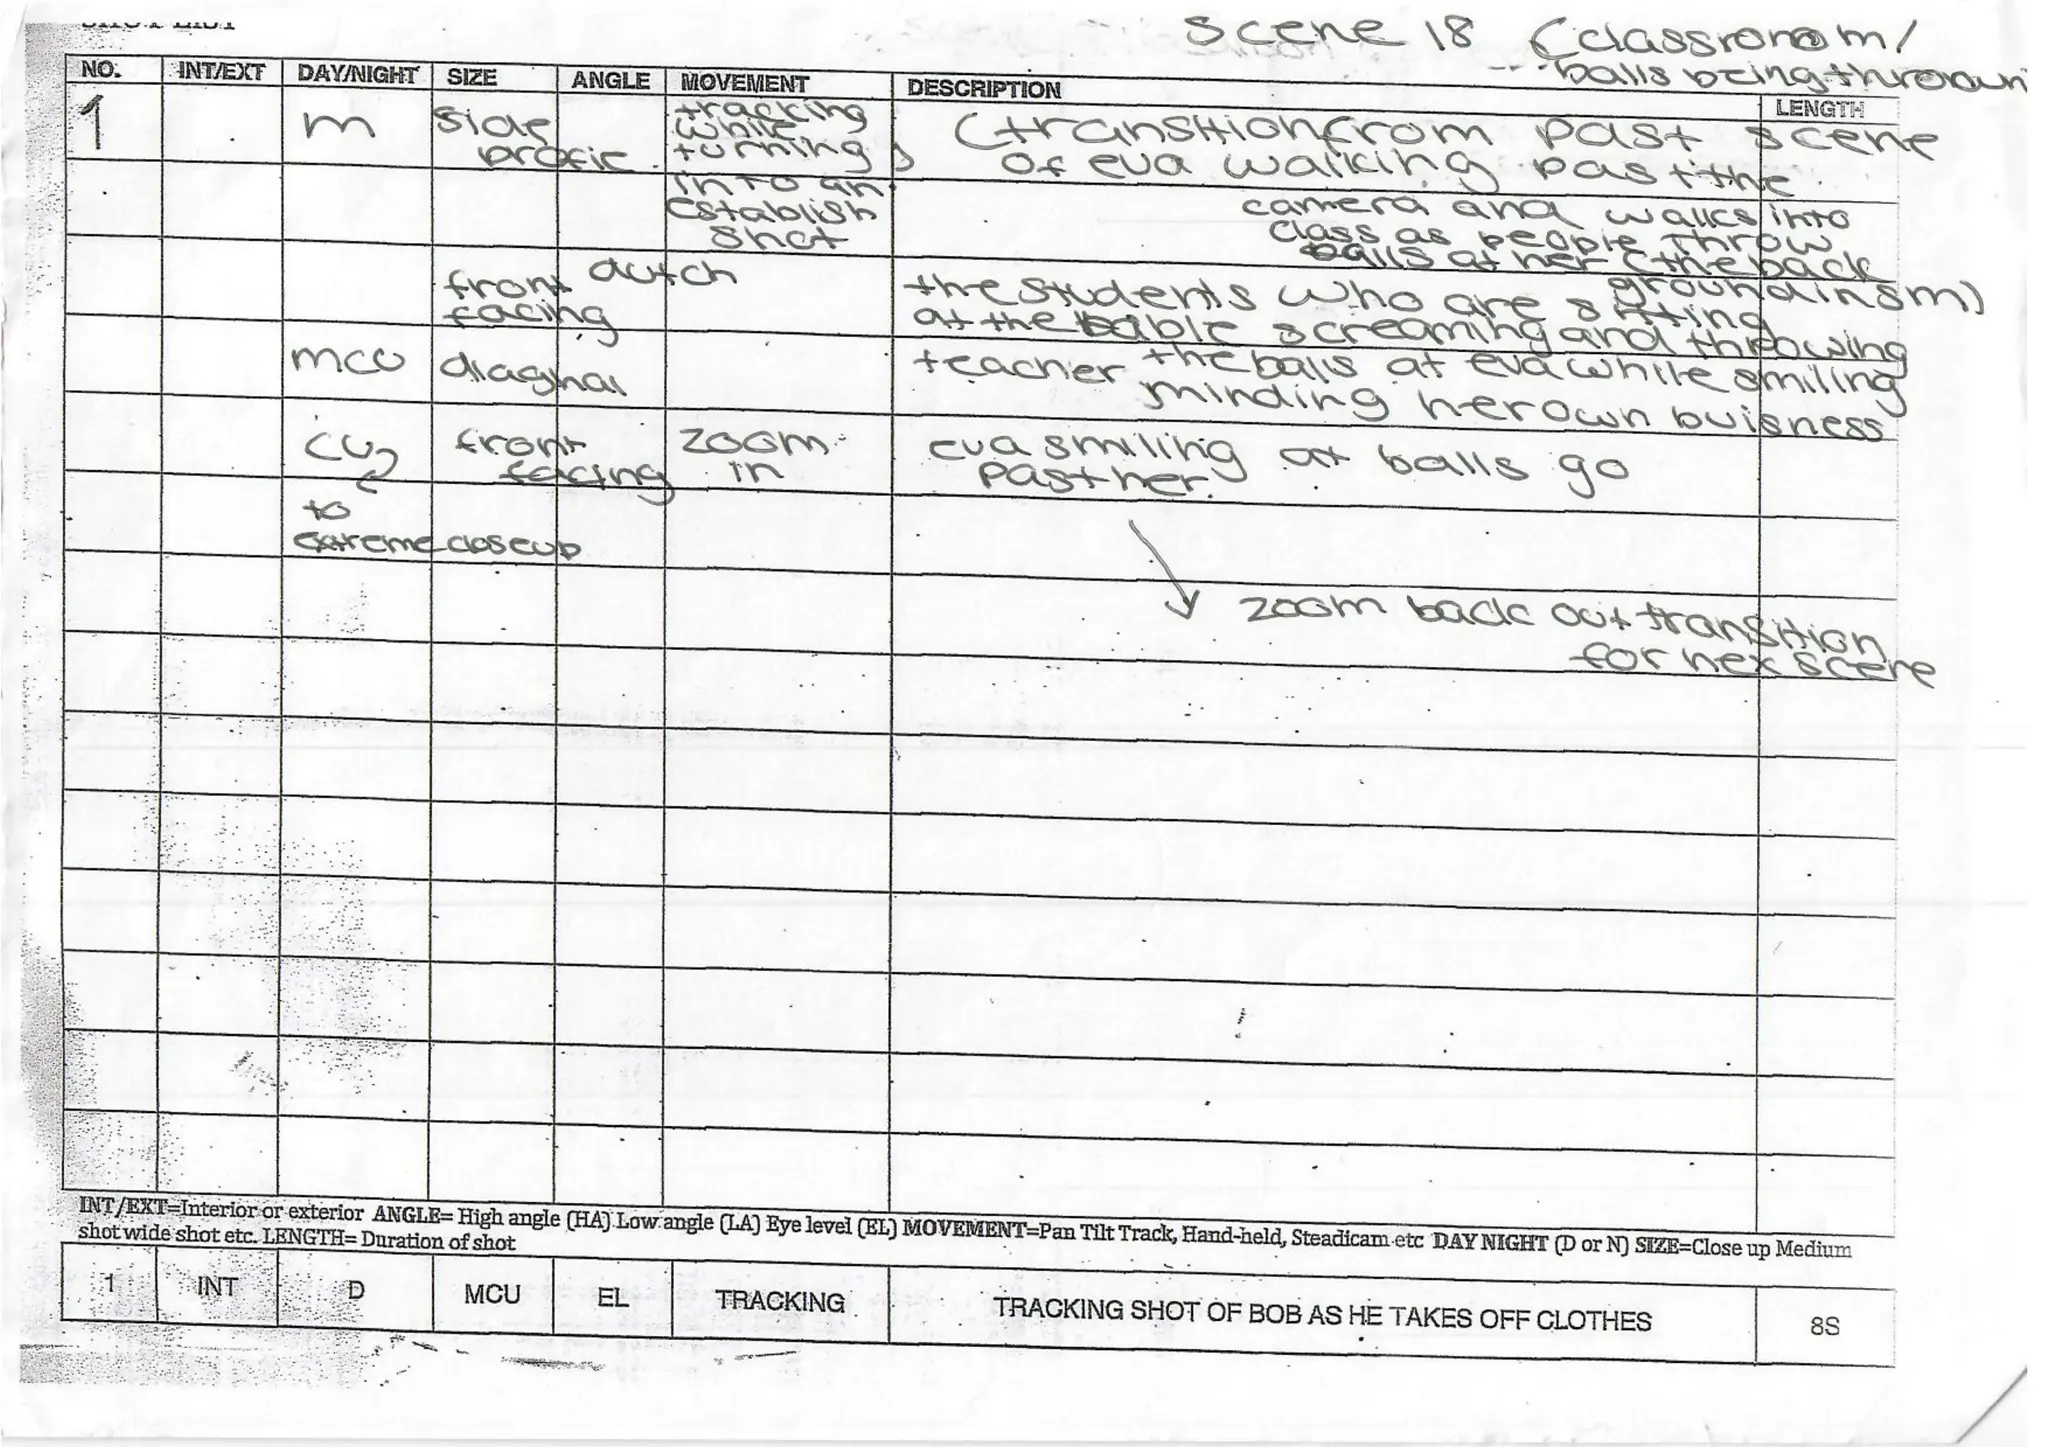 SHOT LIST
Scene 18 (classroom /
balls being thrown
NO. INT/EXT DAY/NIGHT SIZE ANGLE MOVEMENT DESCRIPTION LENGTH
1 m side profic tracking while turning, (transition from past scene
of eva walking past the
into an establish shot camera and walks into
class as people throw
balls at her (the back
ground in sm)
front facing dutch the students who are sitting
at the table screaming and throwing
the balls at eva while smiling
mcu diagnal teacher minding her own buisness
CU front facing zoom in eva smiling at balls go
past her.
to
extreme close up
zoom back out transition
for nex scene
INT/EXT=Interior or exterior ANGLE= High angle (HA) Low angle (LA) Eye level (EL) MOVEMENT=Pan Tilt Track, Hand-held, Steadicam etc DAY NIGHT (D or N) SIZE=Close up Medium
shot wide shot etc. LENGTH= Duration of shot
1 INT D MCU EL TRACKING TRACKING SHOT OF BOB AS HE TAKES OFF CLOTHES 8S